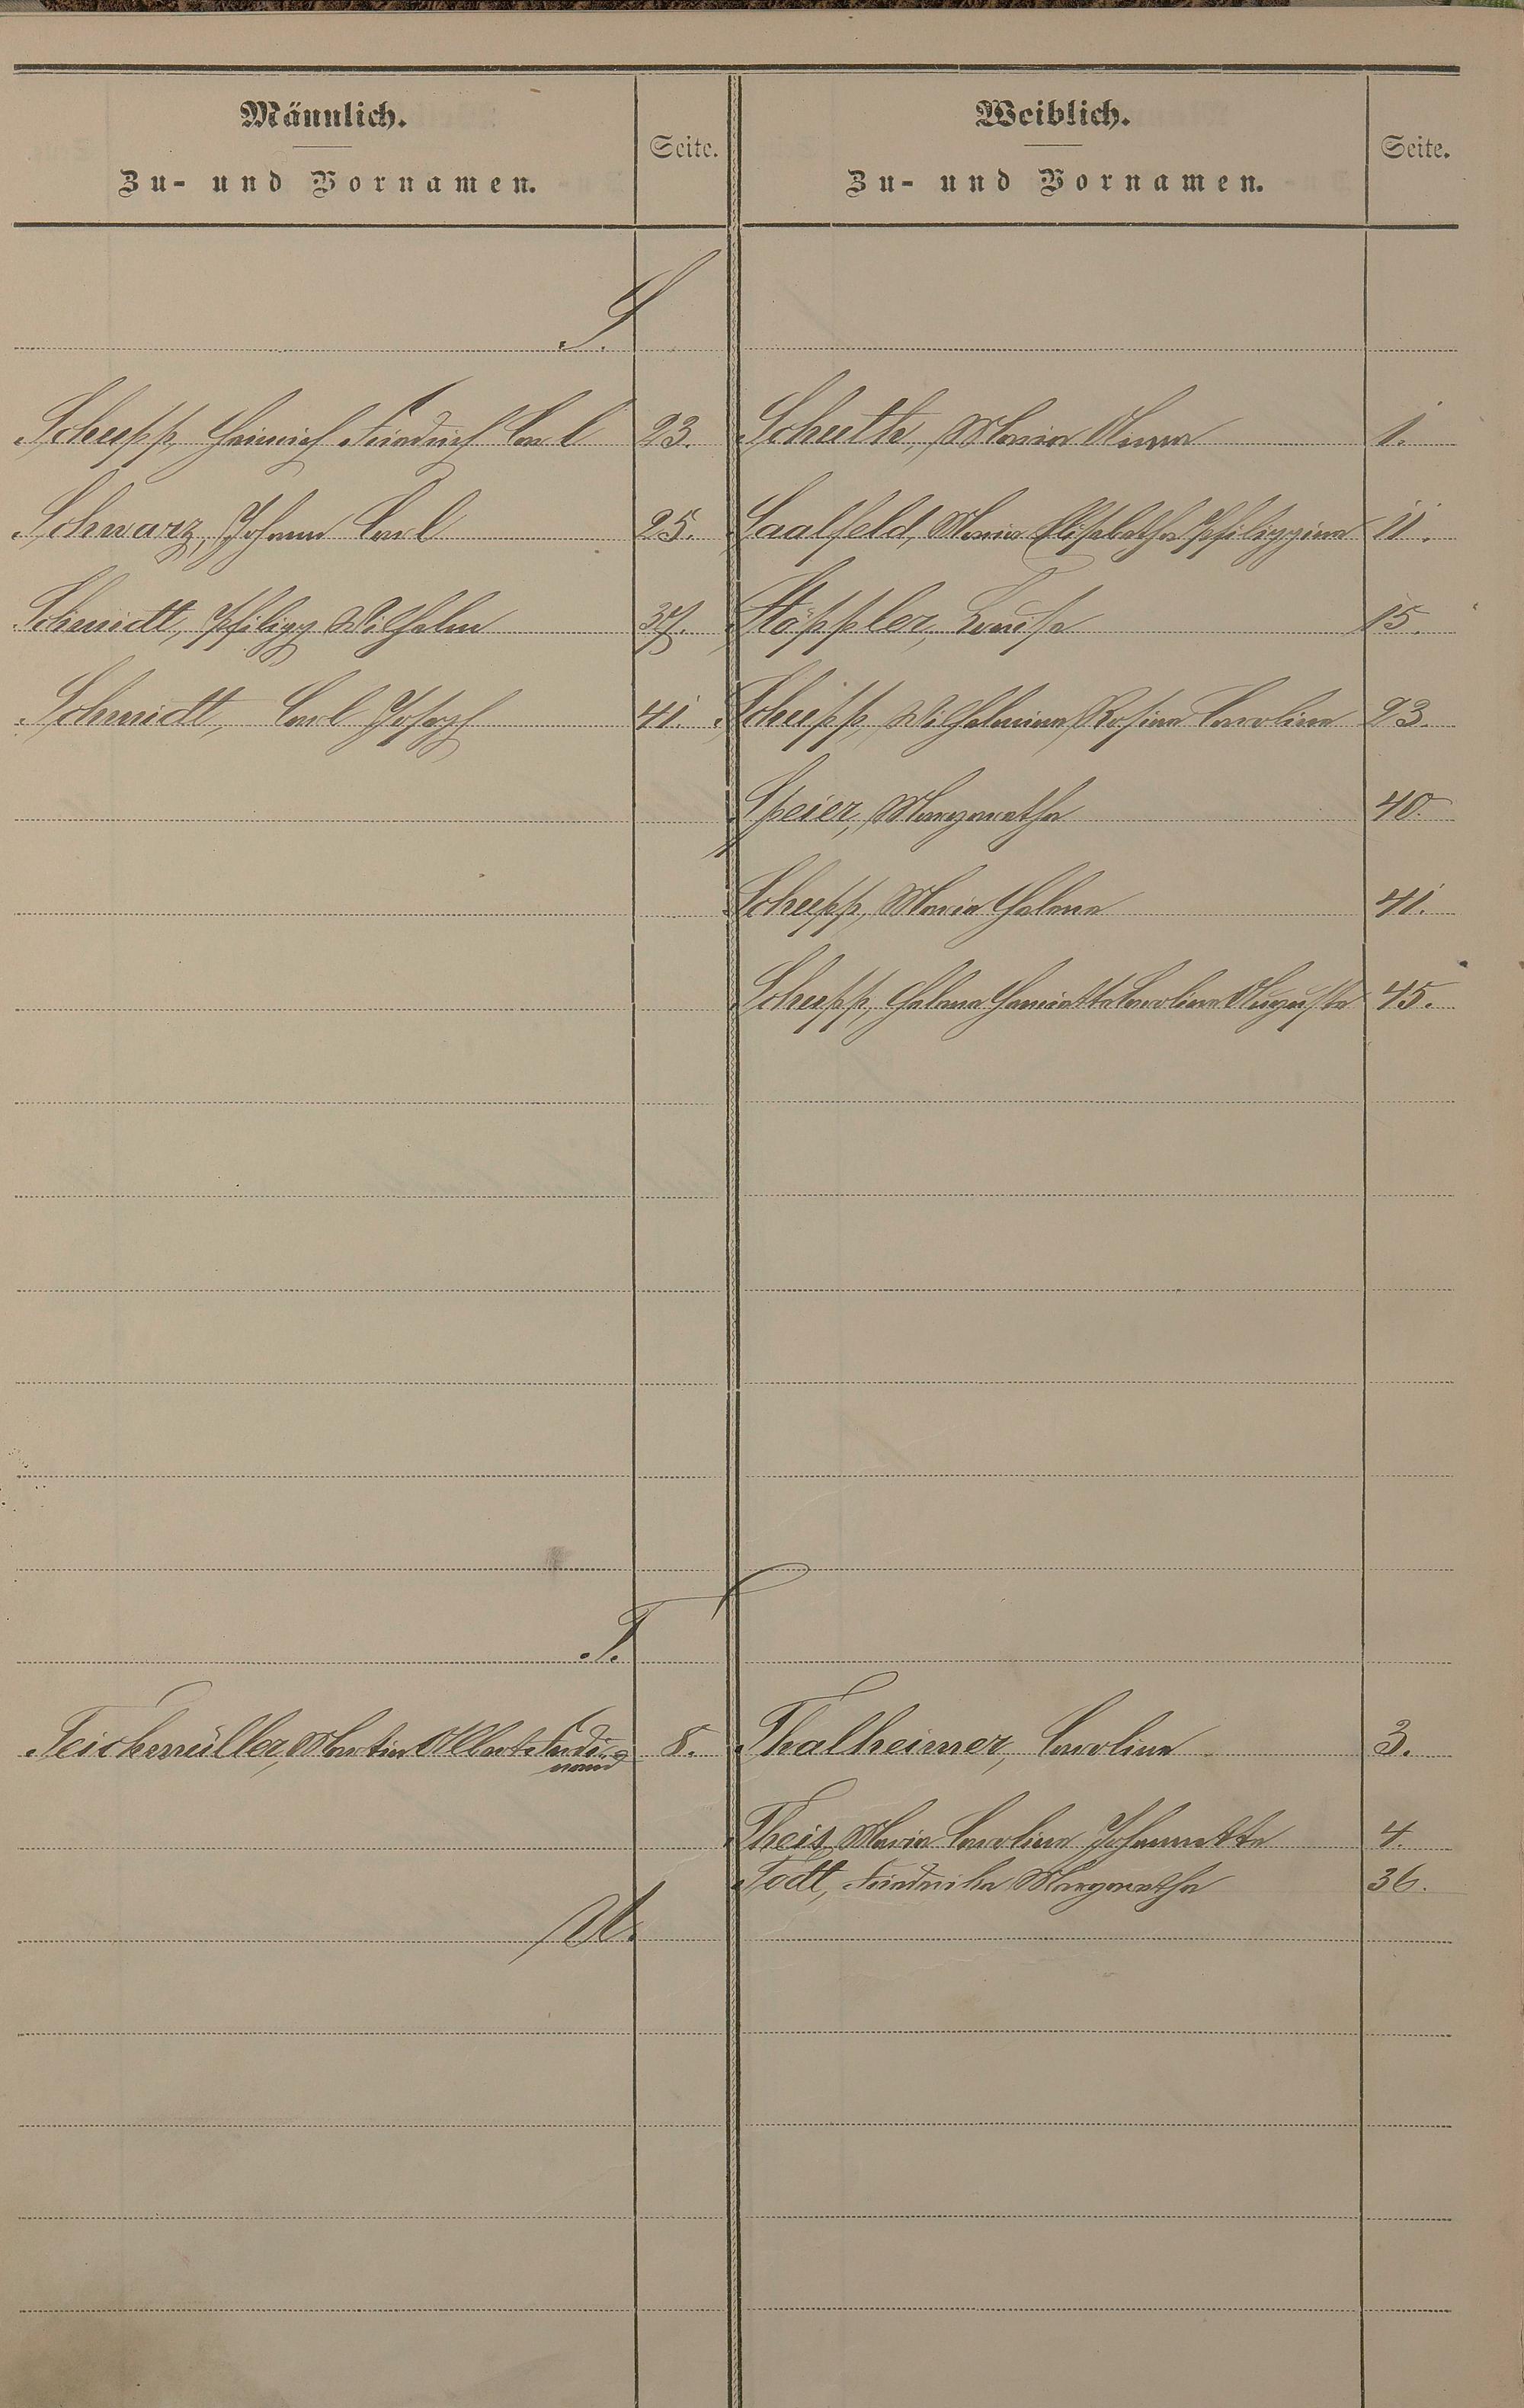 Männlich.
Zu- und Vornamen.
Seite.
Weiblich.
Zu- und Vornamen.
Seite.
S.
Schupp, Heinrich Friedrich Carl 23. Schuth, Maria Anna 1.
Schwarz, Johann Carl 25. Saalfeld, Maria Elisabetha Philippina 11.
Schmidt, Philipp Wilhelm 37. Stöppler, Louise 15.
Schmidt, Carl Joseph 41. Schupp, Wilhelmine Rosina Carolina 23.
Speier, Margaretha 40.
Schupp, Maria Helene 41.
Schupp, Helena Henriette Carolina Auguste 45.
T.
Teichmüller, Martin Albert Ferdi= 8. Thalheimer, Carolina 3.
nand
Theis, Maria Carolina Johannette 4.
Todt, Friedrike Margaretha 36.
U.